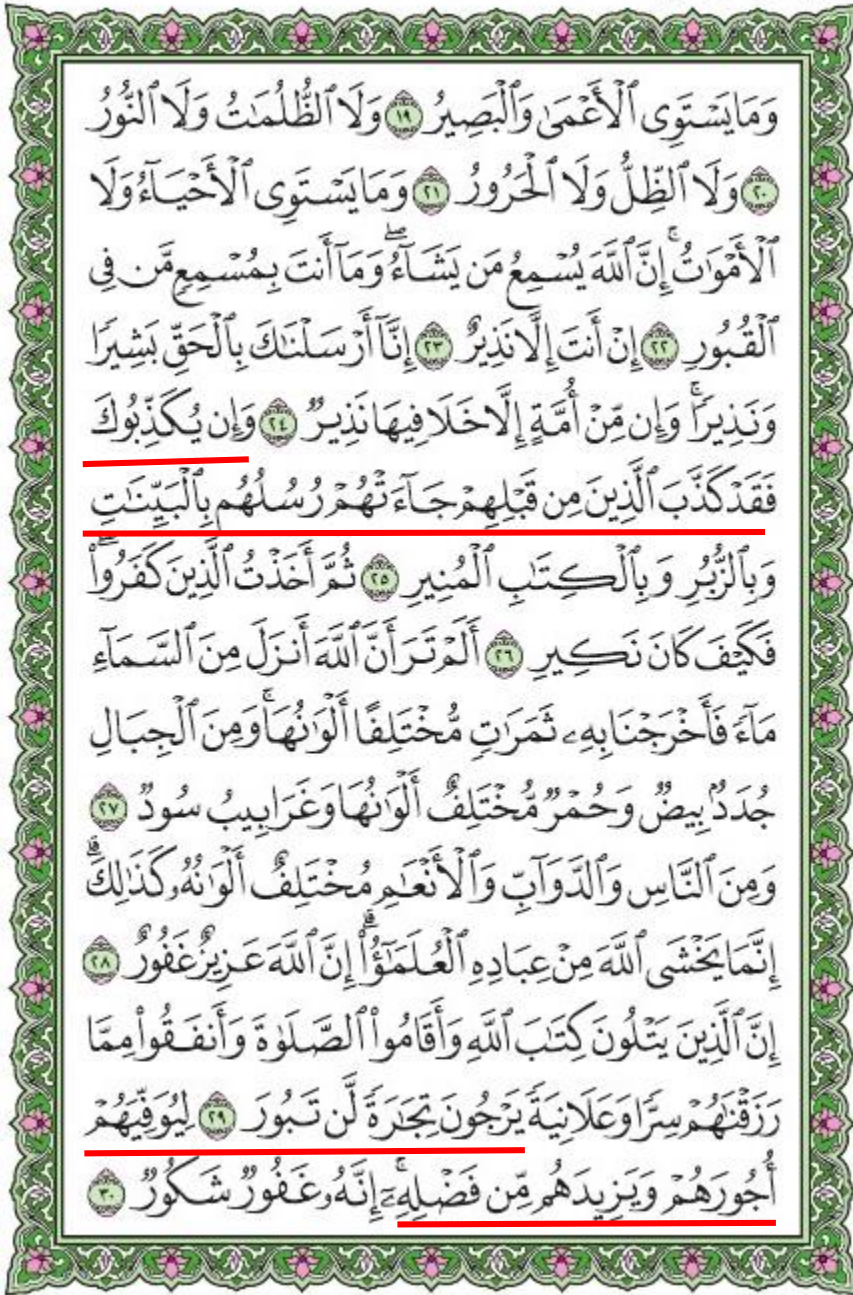 وَمَا يَسْتَوِى ٱلْأَعْمَىٰ وَٱلْبَصِيرُ ١٩ وَلَا ٱلظُّلُمَٰتُ وَلَا ٱلنُّورُ
٢٠ وَلَا ٱلظِّلُّ وَلَا ٱلْحَرُورُ ٢١ وَمَا يَسْتَوِى ٱلْأَحْيَآءُ وَلَا
ٱلْأَمْوَٰتُ ۚ إِنَّ ٱللَّهَ يُسْمِعُ مَن يَشَآءُ ۖ وَمَآ أَنتَ بِمُسْمِعٍ مَّن فِى
ٱلْقُبُورِ ٢٢ إِنْ أَنتَ إِلَّا نَذِيرٌ ٢٣ إِنَّآ أَرْسَلْنَٰكَ بِٱلْحَقِّ بَشِيرًا
وَنَذِيرًا ۚ وَإِن مِّنْ أُمَّةٍ إِلَّا خَلَا فِيهَا نَذِيرٌ ٢٤ وَإِن يُكَذِّبُوكَ
فَقَدْ كَذَّبَ ٱلَّذِينَ مِن قَبْلِهِمْ جَآءَتْهُمْ رُسُلُهُم بِٱلْبَيِّنَٰتِ
وَبِٱلزُّبُرِ وَبِٱلْكِتَٰبِ ٱلْمُنِيرِ ٢٥ ثُمَّ أَخَذْتُ ٱلَّذِينَ كَفَرُوا۟ ۖ
فَكَيْفَ كَانَ نَكِيرِ ٢٦ أَلَمْ تَرَ أَنَّ ٱللَّهَ أَنزَلَ مِنَ ٱلسَّمَآءِ
مَآءً فَأَخْرَجْنَا بِهِۦ ثَمَرَٰتٍ مُّخْتَلِفًا أَلْوَٰنُهَا ۚ وَمِنَ ٱلْجِبَالِ
جُدَدٌۢ بِيضٌ وَحُمْرٌ مُّخْتَلِفٌ أَلْوَٰنُهَا وَغَرَابِيبُ سُودٌ ٢٧
وَمِنَ ٱلنَّاسِ وَٱلدَّوَآبِّ وَٱلْأَنْعَٰمِ مُخْتَلِفٌ أَلْوَٰنُهُۥ كَذَٰلِكَ ۗ
إِنَّمَا يَخْشَى ٱللَّهَ مِنْ عِبَادِهِ ٱلْعُلَمَٰٓؤُا۟ ۗ إِنَّ ٱللَّهَ عَزِيزٌ غَفُورٌ ٢٨
إِنَّ ٱلَّذِينَ يَتْلُونَ كِتَٰبَ ٱللَّهِ وَأَقَامُوا۟ ٱلصَّلَوٰةَ وَأَنفَقُوا۟ مِمَّا
رَزَقْنَٰهُمْ سِرًّا وَعَلَانِيَةً يَرْجُونَ تِجَٰرَةً لَّن تَبُورَ ٢٩ لِيُوَفِّيَهُمْ
أُجُورَهُمْ وَيَزِيدَهُم مِّن فَضْلِهِۦٓ ۚ إِنَّهُۥ غَفُورٌ شَكُورٌ ٣٠